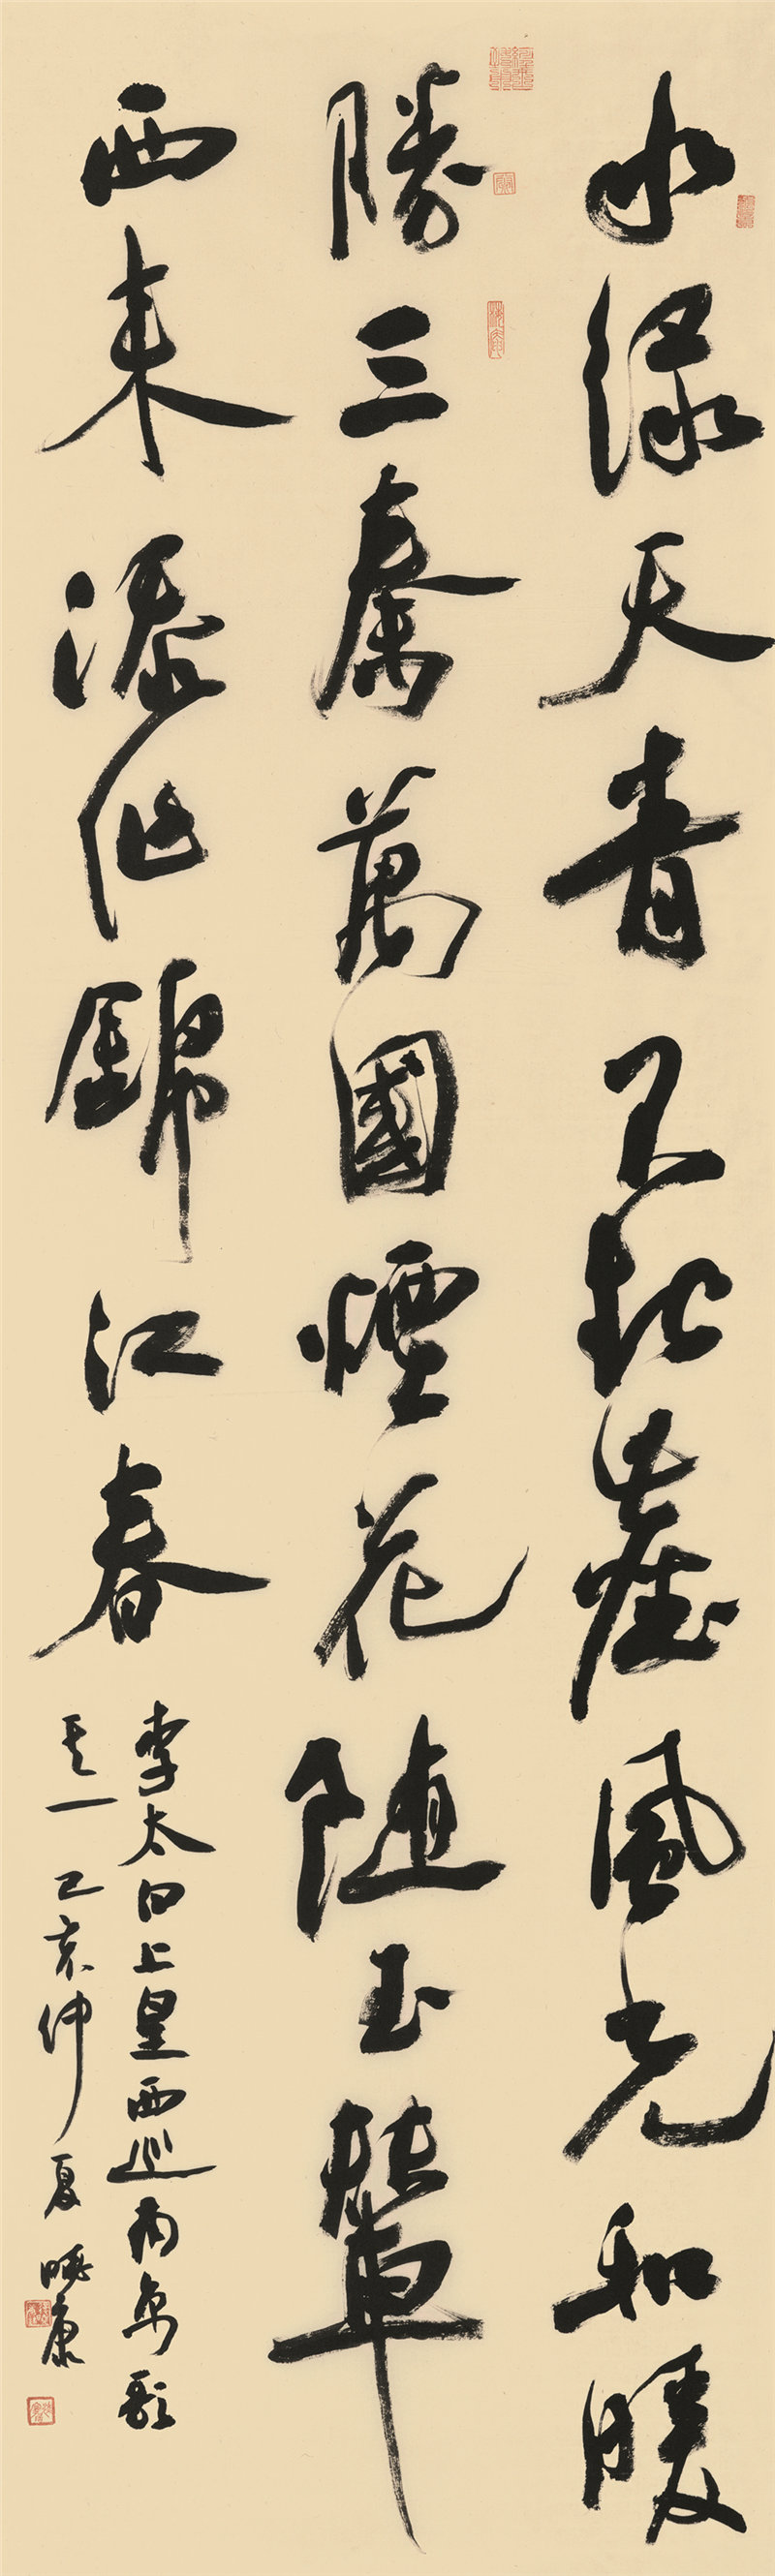 水綠天青不起塵風光和暖
勝三秦萬國煙花隨玉輦
西來添作錦江春
李太白上皇西巡南京歌
其一己亥仲夏曉康